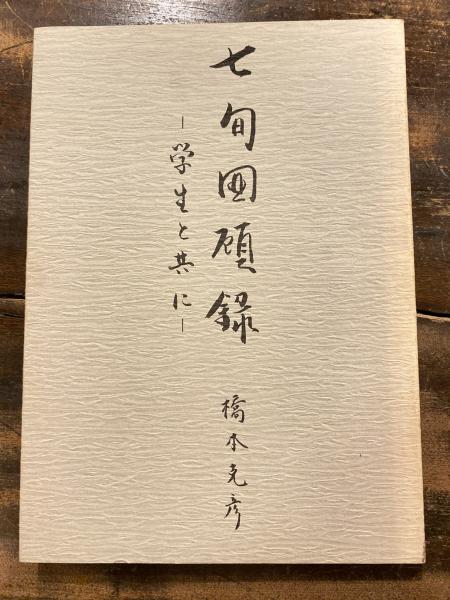 七旬回顧録
―学生と共に―
橋本克彦